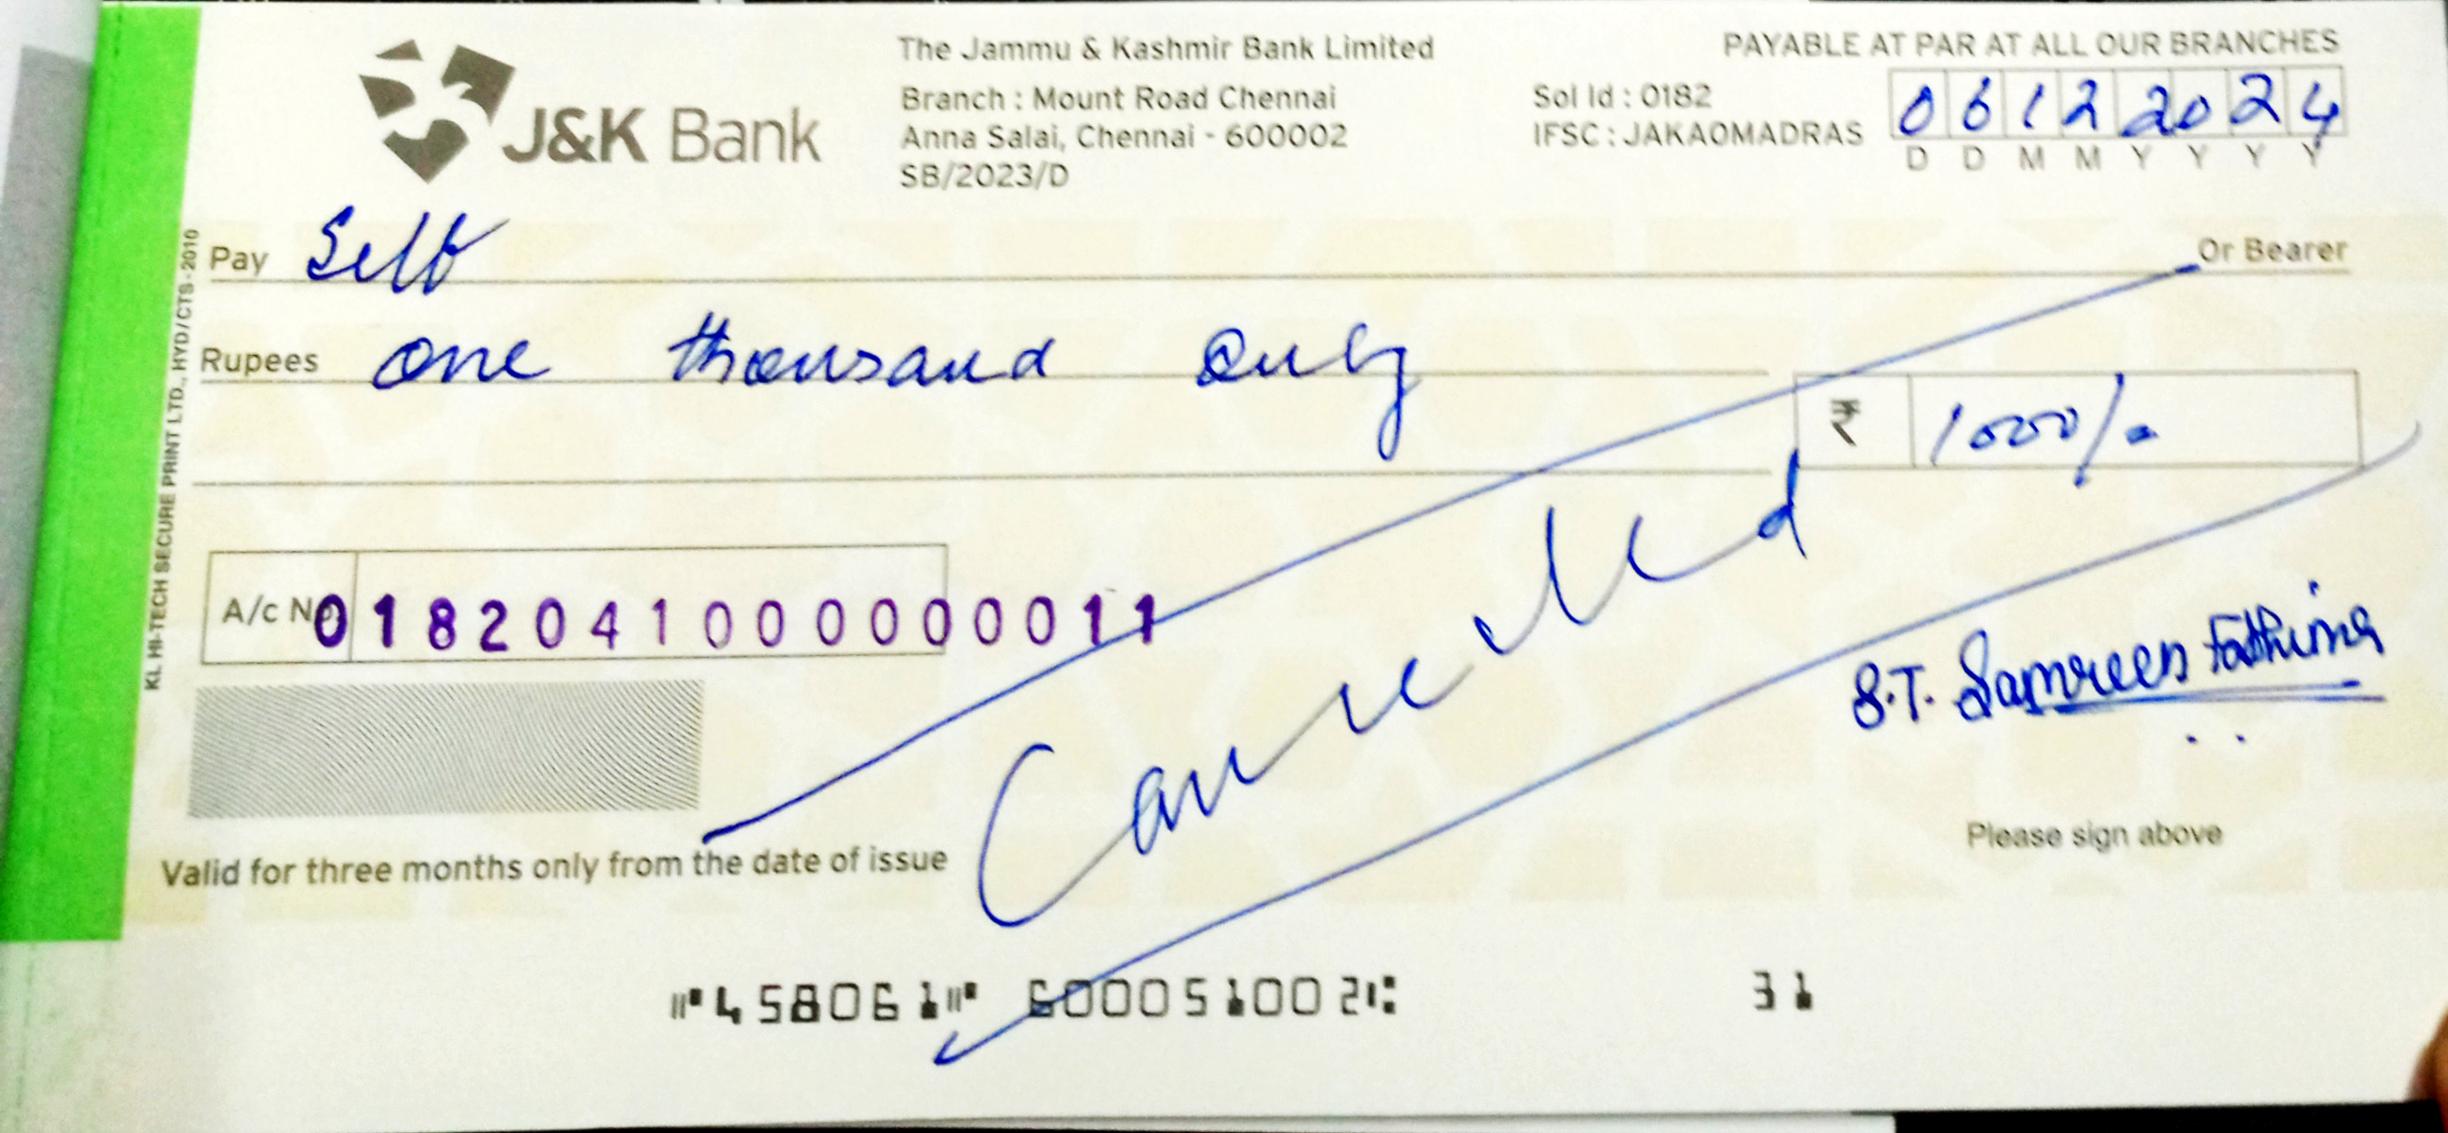 J&K Bank
The Jammu & Kashmir Bank Limited
Branch : Mount Road Chennai
Anna Salai, Chennai - 600002
SB/2023/D
PAYABLE AT PAR AT ALL OUR BRANCHES
Sol Id : 0182
IFSC : JAKA0MADRAS
0 6 1 2 2 0 2 4
D D M M Y Y Y Y
Pay Self Or Bearer
Rupees one thousand only
₹ 1000/-
A/c No. 0182041000000011
Cancelled
S.T. Samreen Fathima
Please sign above
Valid for three months only from the date of issue
KL HI-TECH SECURE PRINT LTD., HYD/CTS-2010
⑈458061⑈ 600051002⑆ 31